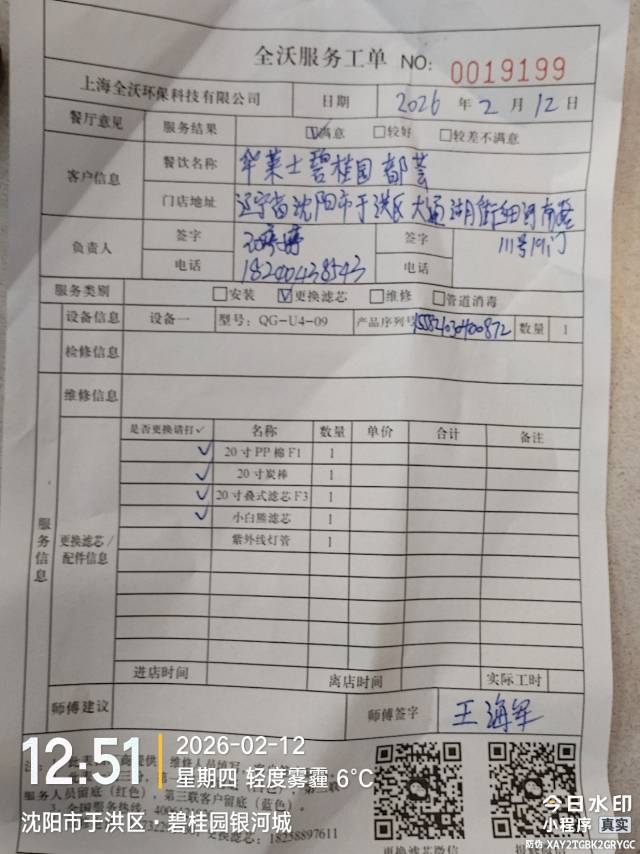 全沃服务工单 NO: 0019199
上海全沃环保科技有限公司 日期 2026 年 2 月 12 日
餐厅意见 服务结果 ☑满意 □较好 □较差不满意
客户信息 餐饮名称 华莱士碧桂园都荟
门店地址 辽宁省沈阳市于洪区大通湖街细河南
111号19门
负责人 签字 签字
电话 18200438543 电话
服务类别 □安装 ☑更换滤芯 □维修 □管道消毒
设备信息 设备一 型号：QG-U4-09 产品序列号 数量 1
检修信息
维修信息
服务信息
更换滤芯/配件信息
是否更换请打✓ 名称 数量 单价 合计 备注
✓ 20寸PP棉F1 1
✓ 20寸炭棒 1
✓ 20寸叠式滤芯F3 1
✓ 小白熊滤芯 1
紫外线灯管 1
进店时间 离店时间 实际工时
师傅建议 师傅签字 王海军
12:51 2026-02-12
星期四 轻度雾霾 6°C
沈阳市于洪区·碧桂园银河城
服务人员留底（红色）。第三联客户留底（蓝色）。
18258897611
更换滤芯微信
今日水印
小程序 真实
防伪 XAY2TGBK2GRYGC